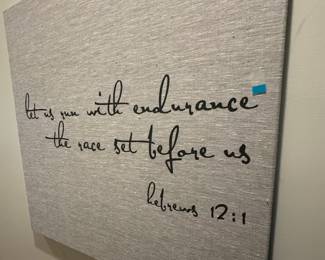 let us run with endurance
the race set before us
hebrews 12:1